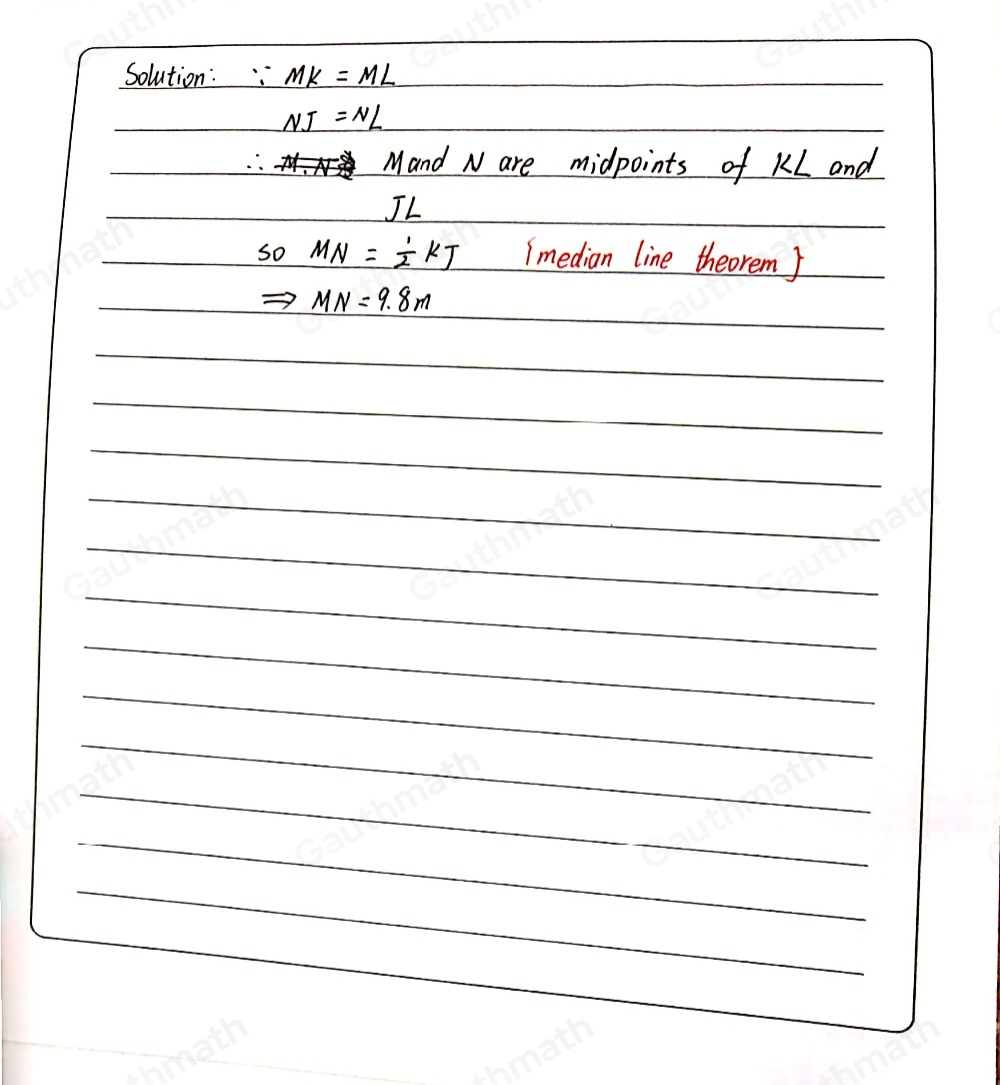 Solution: ∵ MK = ML
NJ = NL
∴ M and N are midpoints of KL and
JL
so MN = 1/2 KJ {median line theorem}
⇒ MN = 9.8m
Gauthmath